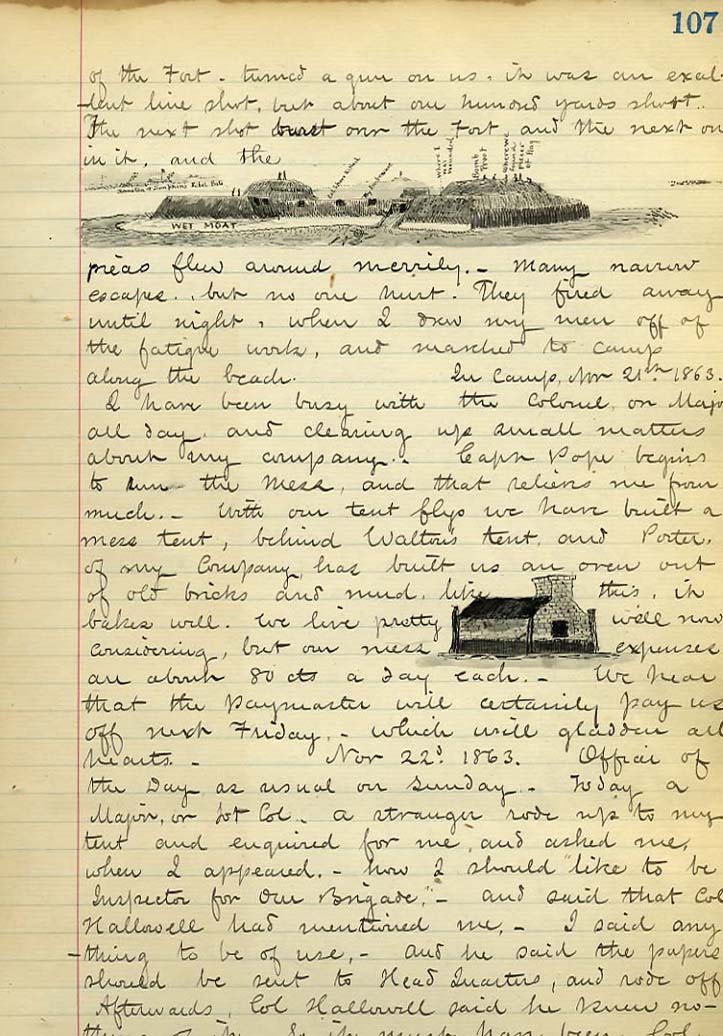 107
of the Fort - turned a gun on us. it was an excel-
-lent line shot, but about one hundred yards short.
The next shot burst over the Fort and the next on
in it, and the
Where I was wounded
Bomb Proof
Where we found piece of Flag
WET MOAT
pieces flew around merrily. - Many narrow
escapes. but no one hurt. They fired away
until night, when I drew my men off of
the fatigue work, and marched to camp
along the beach. In Camp, Nov 21st 1863.
I have been busy with the Colonel, on Majo
all day, and clearing up small matters
about my company. - Capt Pope begins
to run the Mess, and that relieves me from
much. - With our tent flys we have built a
mess tent, behind Walton's tent, and Porter.
of my Company, has built us an oven out
of old bricks and mud, like this, it
bakes well. We live pretty well now
considering, but our mess expenses
are about 80 cts a day each. - We hear
that the Paymaster will certainly pay us
off next Friday, - which will gladden all
hearts. - Nov 22d 1863. Officer of
the Day, as usual on Sunday. - Today a
Major, or Lt Col. a stranger rode up to my
tent and enquired for me, and asked me,
when I appeared, - how I should "like to be
Inspector for Our Brigade," - and said that Col
Hallowell had mentioned me, - I said any
-thing to be of use, - and he said the papers
should be sent to Head Quarters, and rode off
Afterwards, Col Hallowell said he knew no-